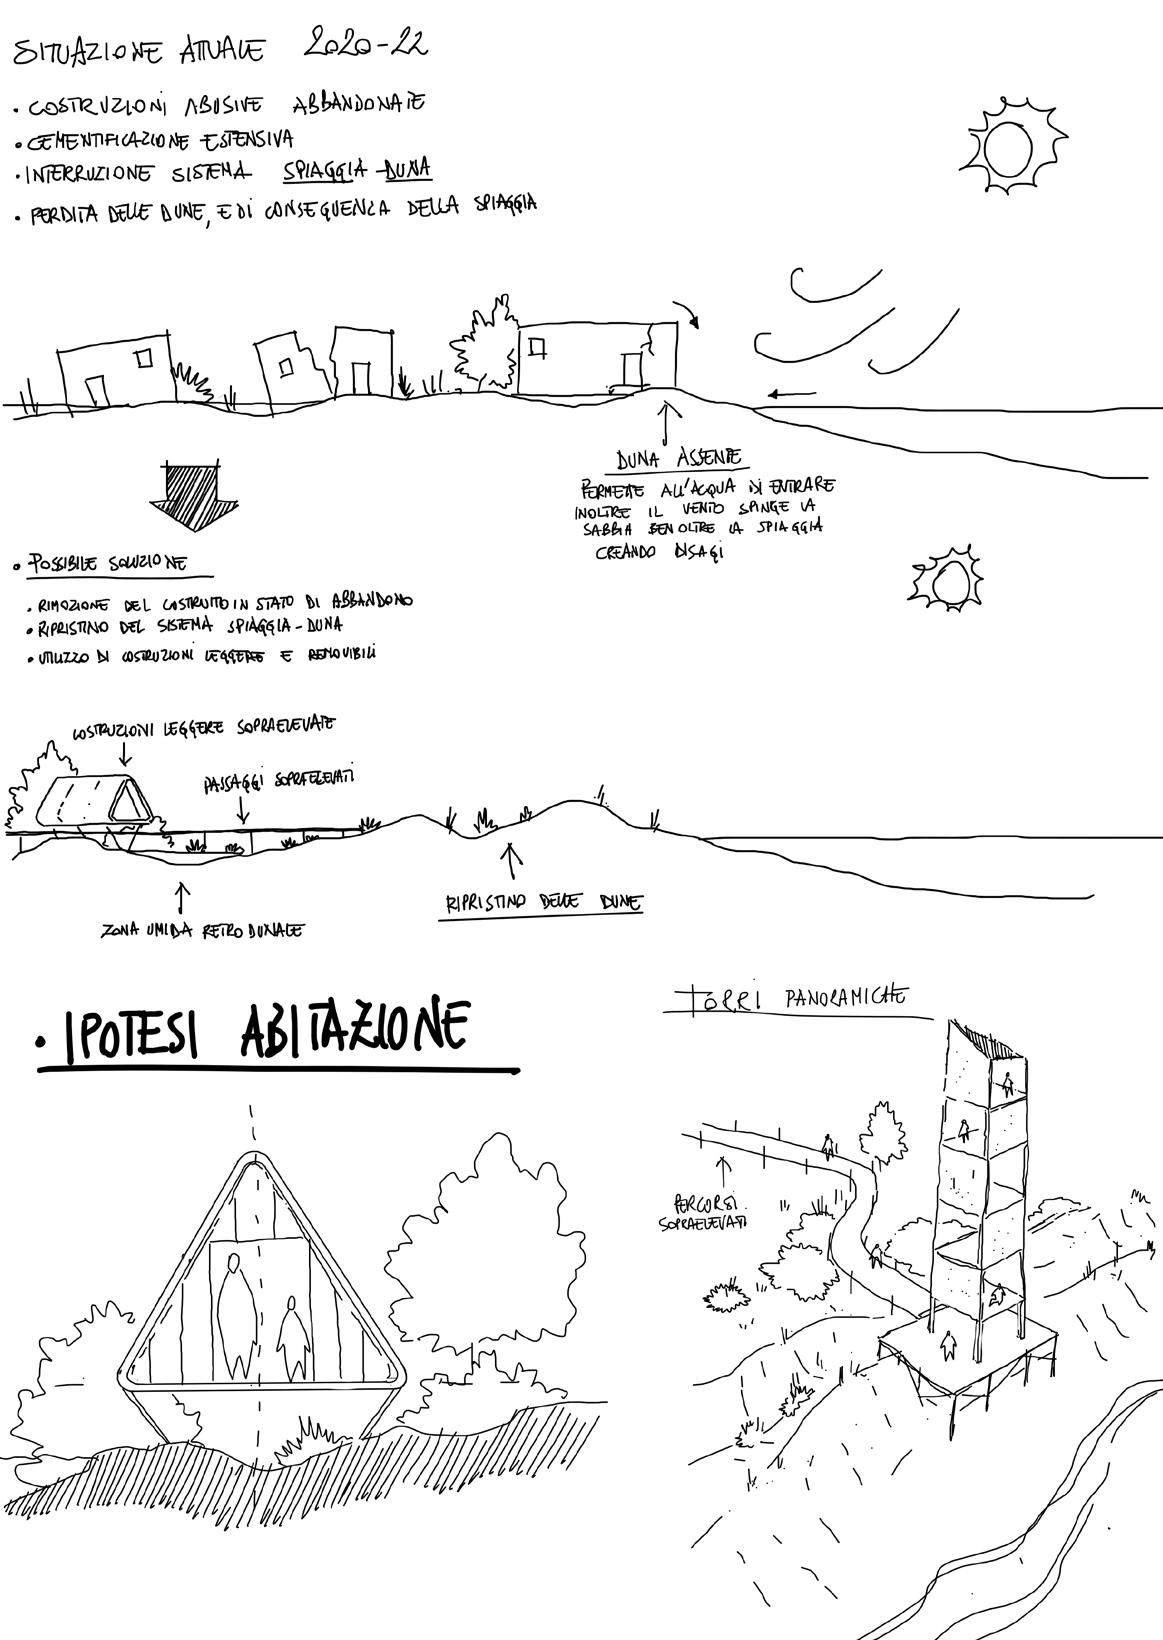 SITUAZIONE ATTUALE 2020-22
• COSTRUZIONI ABUSIVE ABBANDONATE
• CEMENTIFICAZIONE ESTENSIVA
• INTERRUZIONE SISTEMA SPIAGGIA-DUNA
• PERDITA DELLE DUNE, E DI CONSEGUENZA DELLA SPIAGGIA
DUNA ASSENTE
PERMETTE ALL'ACQUA DI ENTRARE
INOLTRE IL VENTO SPINGE LA
SABBIA BEN OLTRE LA SPIAGGIA
CREANDO DISAGI
• POSSIBILE SOLUZIONE
• RIMOZIONE DEL COSTRUITO IN STATO DI ABBANDONO
• RIPRISTINO DEL SISTEMA SPIAGGIA-DUNA
• UTILIZZO DI COSTRUZIONI LEGGERE E REMOVIBILI
COSTRUZIONI LEGGERE SOPRAELEVATE
PASSAGGI SOPRAELEVATI
RIPRISTINO DELLE DUNE
ZONA UMIDA RETRO DUNALE
• IPOTESI ABITAZIONE
TORRI PANORAMICHE
PERCORSI
SOPRAELEVATI